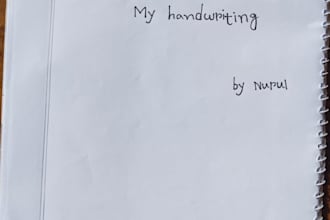 My handwriting
by Nurul